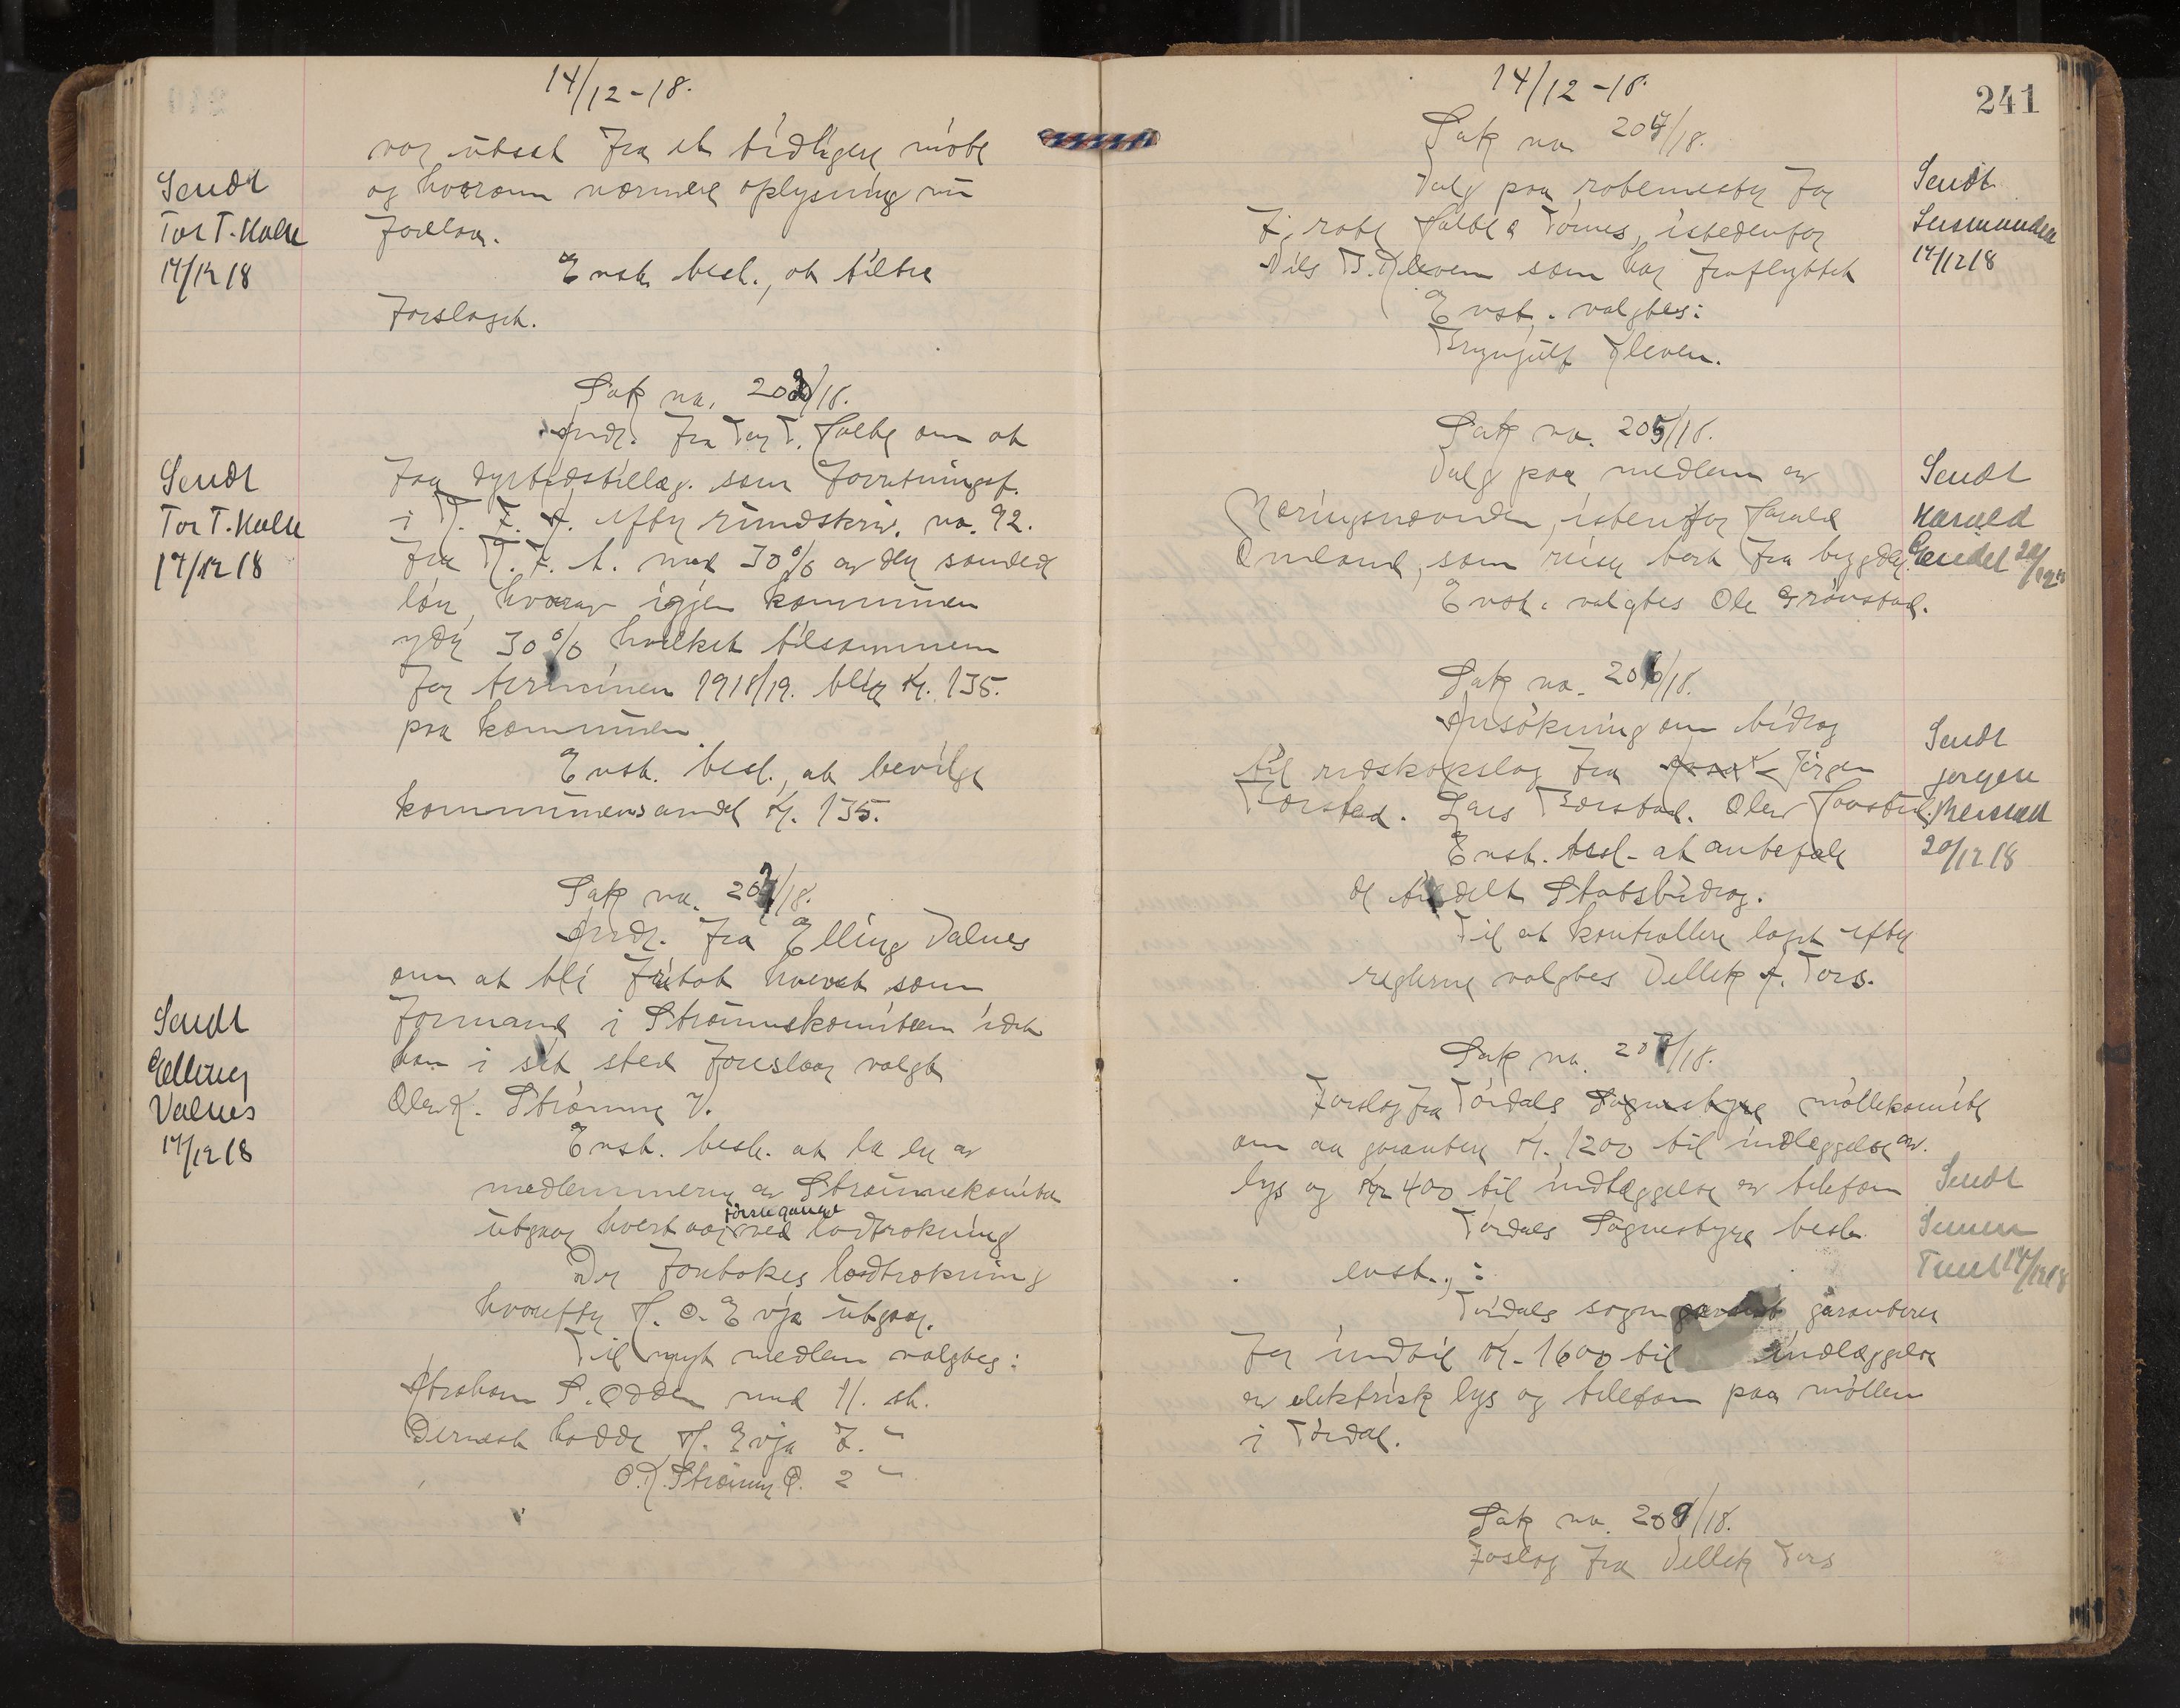 14/12-18.
var utsat fra et tidligere möte
og hvorom nærmere oplysning nu
forelaa.
Enst. besl., at tiltræ
forslaget.
Sendt
Tor T. Kalle
17/12 18
Sak no. 202/18.
Andr. fra Tor T. om at
faa dyrtidstillæg. som forretningsf.
i efter rundskriv. no. 92.
fra med 30% av den samlede
lön, hvorav igjen kommunen
yder 30% hvilket tilsammen
for terminen 1918/19. blir Kr. 135.
paa kommunen.
Enst. besl., at bevilge
kommunens andel Kr. 135.
Sendt
Tor T. Kalle
17/12 18
Sak no. 203/18.
Andr. fra Elling Valnes
om at bli fritat hvervet som
formand i Strömmekomiteen idet
han i sit sted foreslaar valgt
Olav K. Strömme
Enst. besl. at la en av
medlemmerne av Strömmekomiteen
utgaar hvert aar ved förste gangs lodtrækning
Der foretokes lodtrækning
hvorefter H. O. Evja utgaar.
Til nyt medlem valgtes:
Abraham S. Odden med 11. st.
Dernæst hadde H. Evja 7. "
O. K. Strömme 2 "
Sendt
Elling
Valnes
17/12 18
241
14/12-18.
Sak no 204/18.
Valg paa rodemester for
7. rode Törnes, istedenfor
Nils B. Kleven som har fraflyttet
Enst. valgtes:
Brynjulf Kleven.
Sendt
Lensmanden
17/12 18
Sak no. 205/18.
Valg paa medlem av
Næringsnævnden, istenfor Harald
Omland, som reiser bort fra bygden.
Enst. valgtes Ole Grövstad.
Sendt
Harald
20/12 18
Sak no. 206/18.
Ansökning om bidrag
til redskapslag fra Jörgen
Barstad. Lars Barstad. Olav
Enst. besl. at anbefale
de tildelt Statsbidrag.
Til at kontrollere laget efter
reglerne valgtes Vellek A. Tors.
Sendt
Jörgen
Barstad
20/12 18
Sak no. 207/18.
Forslag fra Tördals Sognestyre möllekomite
om aa garantere Kr. 1200 til indlæggelse av.
lys og Kr 400 til indlæggelse av telefon
Tördals Sognestyre besl.
enst.,:
Tördals sogn garanterer
for indtil Kr. 1600 til indlæggelse
av elektrisk lys og telefon paa möllen
i Tördal.
Sendt
17/12 18
Sak no. 208/18.
Foslag fra Vellek Tors